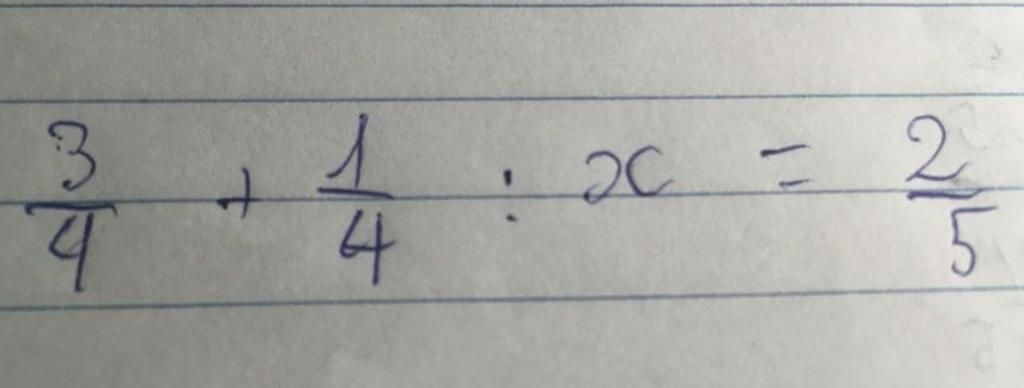 3/4 + 1/4 : x = 2/5